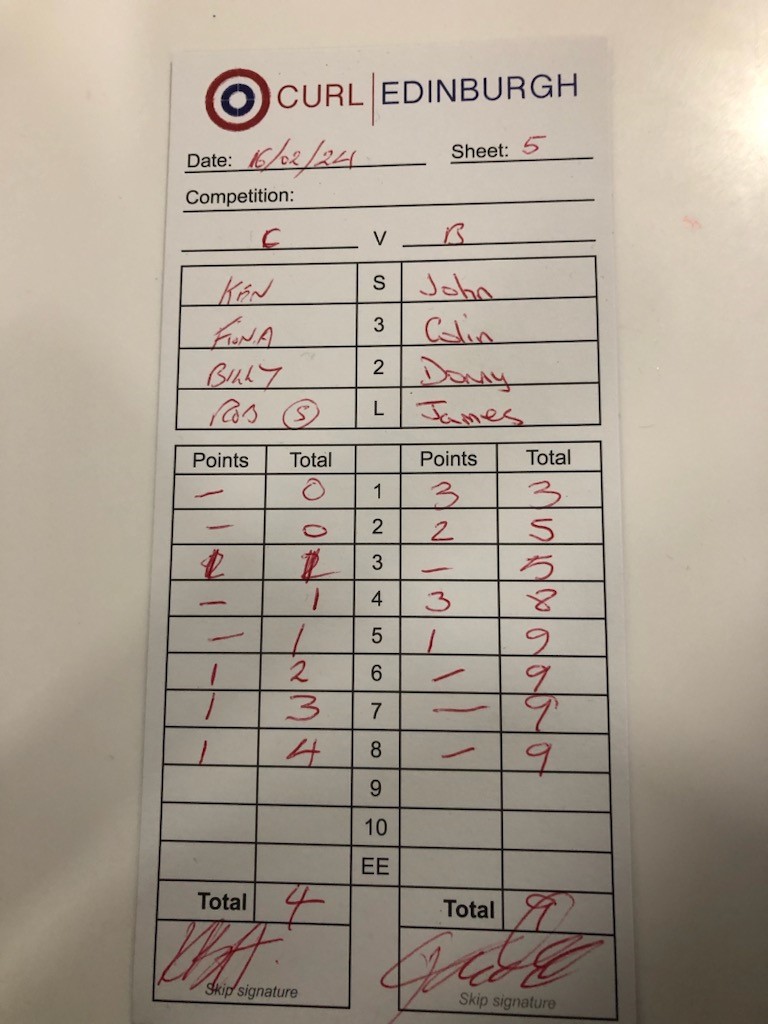 CURL EDINBURGH
Date: 16/02/24 Sheet: 5
Competition:
C V B
KEN S John
FIONA 3 Colin
BILLY 2 Donny
ROB (S) L James
Points Total Points Total
- 0 1 3 3
- 0 2 2 5
1 1 3 - 5
- 1 4 3 8
- 1 5 1 9
1 2 6 - 9
1 3 7 - 9
1 4 8 - 9
9
10
EE
Total 4 Total 9
Skip signature Skip signature